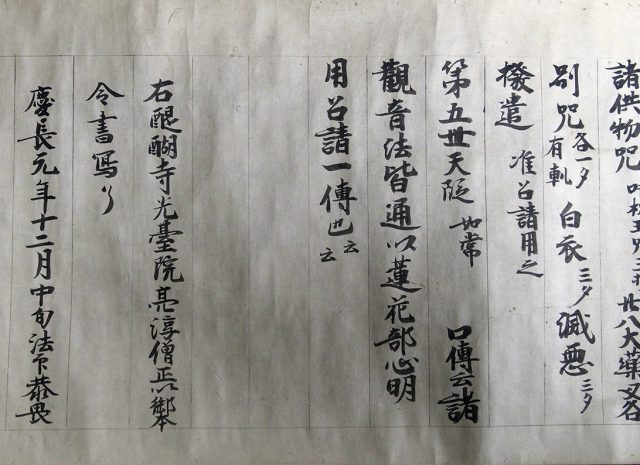 諸供物咒
廿八大藥叉各
別咒各一夕有軌 白衣三夕 滅惡三夕
撥遣 准召請用之
第五世天 如常 口傳云諸
觀音法皆通以蓮花部心明
用召請一傳也云云
右醍醐寺光臺院亮淳僧正以御本
令書寫了
慶長元年十二月中旬法下恭畏